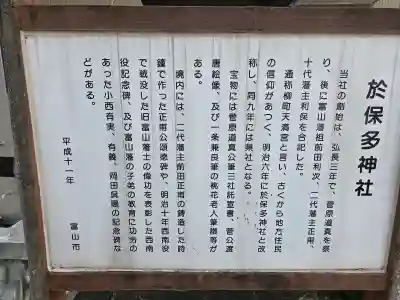 於保多神社
当社の創始は、弘長三年で、菅原道真を祭
り、後に富山藩祖前田利次、二代藩主正甫、
十代藩主利保を合記した。
通称柳町天満宮と言い、古くから地方住民
の信仰があつく、明治六年に於保多神社と改
称し、同九年には県社となる。
宝物には菅原道真公筆三社託宣書、菅公渡
唐絵像、及び一条兼良筆の桃花老人筆譜等が
ある。
境内には、二代藩主前田正甫の鋳造した時
鐘で作った正甫公頌徳碑や、明治十年西南役
で戦没した旧富山藩士の偉功を表彰した西南
役記念碑、及び富山藩の子弟の教育に功労の
あった小西有実、有義、岡田呉陽の記念碑な
どがある。
平成十一年
富山市